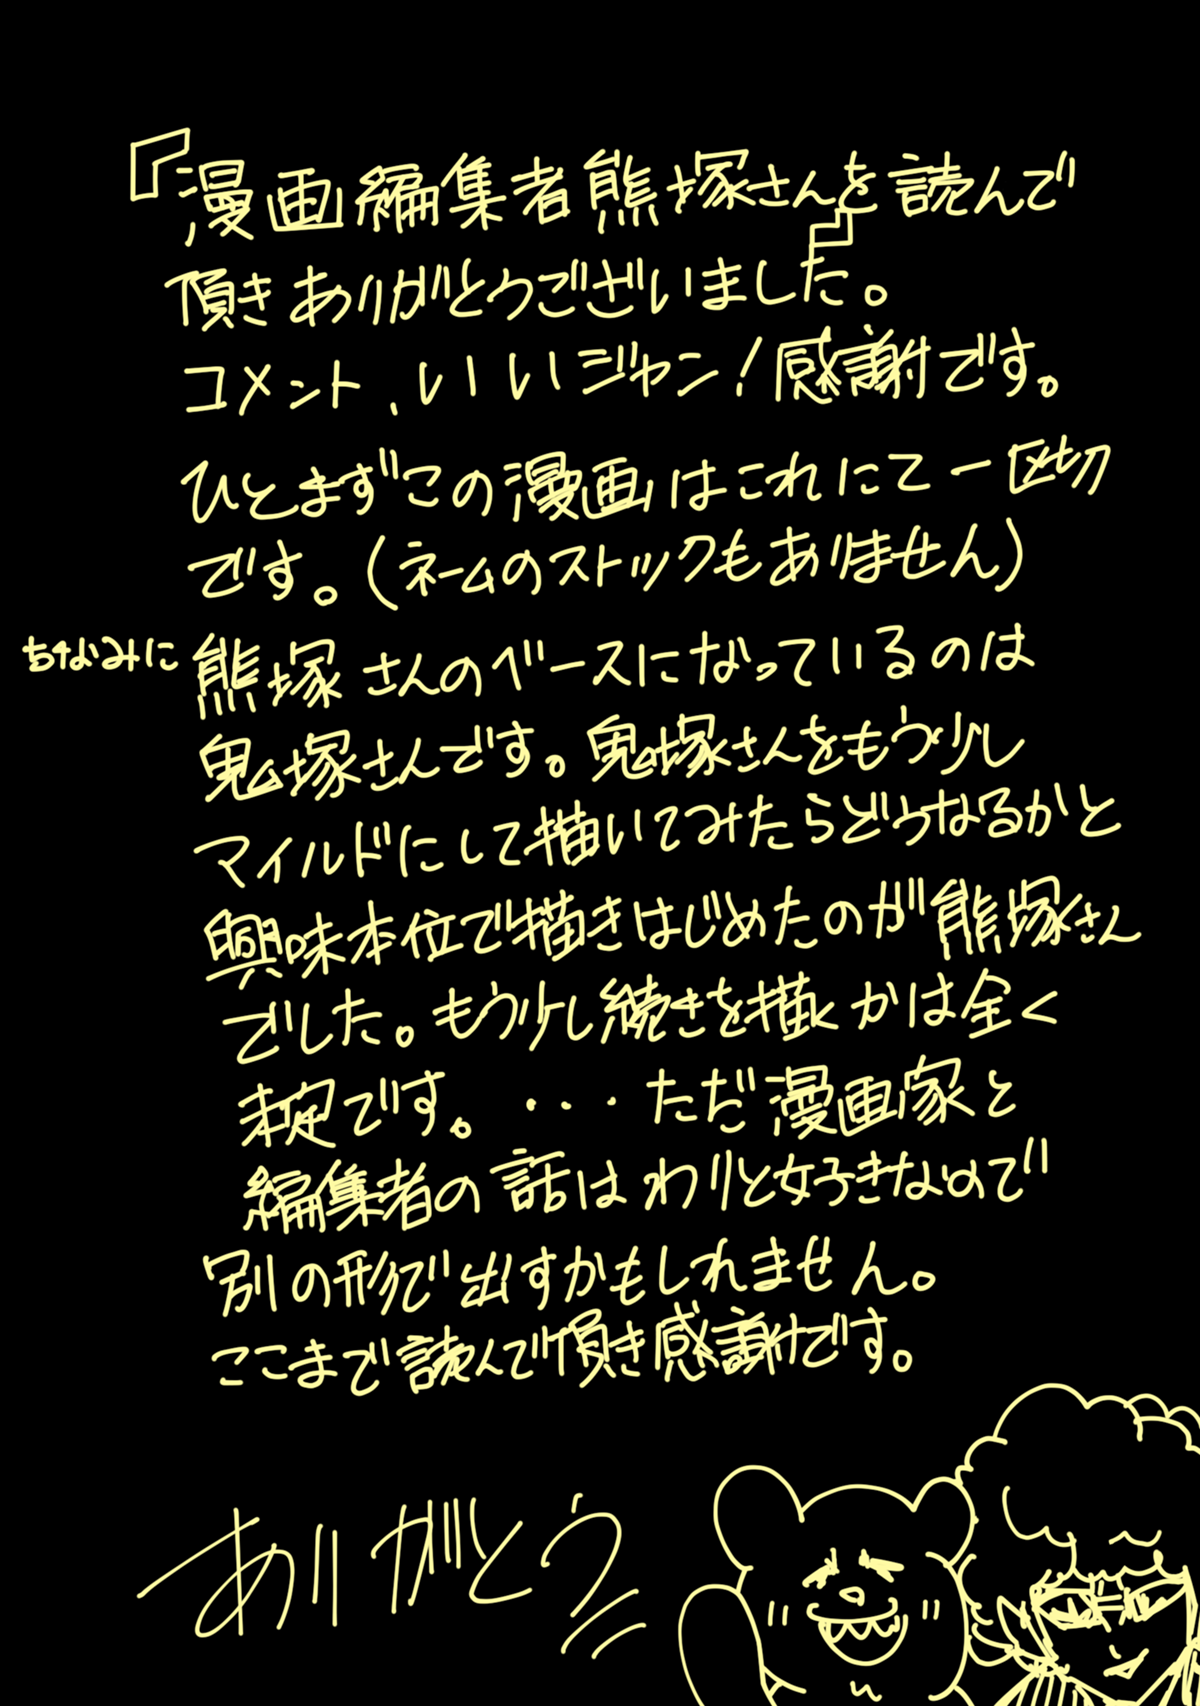 『漫画編集者熊塚さん』を読んで
頂きありがとうございました。
コメント、いいジャン!感謝です。
ひとまずこの漫画はこれにて一区切
です。(ネームのストックもありません)
ちなみに熊塚さんのベースになっているのは
鬼塚さんです。鬼塚さんをもう少し
マイルドにして描いてみたらどうなるかと
興味本位で描きはじめたのが熊塚さん
でした。もう少し続きを描くかは全く
未定です。・・・ただ漫画家と
編集者の話はわりと好きなので
別の形で出すかもしれません。
ここまで読んで頂き感謝です。
ありがとう